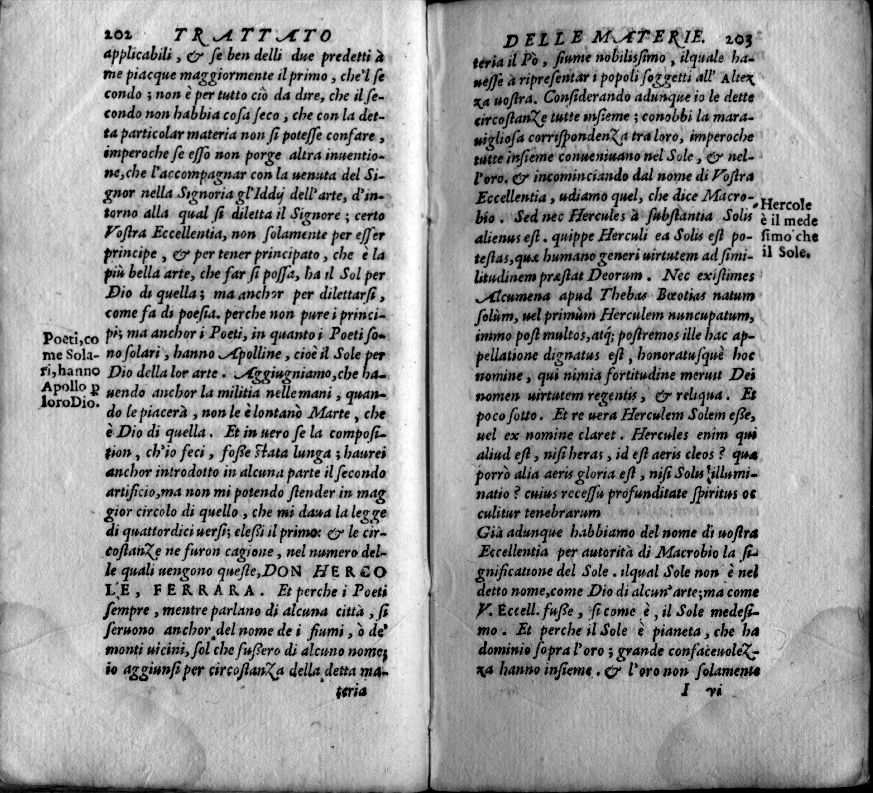 202 TRATTATO
applicabili, & se ben delli due predetti à
me piacque maggiormente il primo, che'l se
condo; non è per tutto ciò da dire, che il se-
condo non habbia cosa seco, che con la det-
ta particolar materia non si potesse confare,
imperoche se esso non porge altra inuentio-
ne, che l'accompagnar con la uenuta del Si-
gnor nella Signoria gl'Iddij dell'arte, d'in-
torno alla qual si diletta il Signore; certo
Vostra Eccellentia, non solamente per esser
principe, & per tener principato, che è la
più bella arte, che far si possa, ha il Sol per
Dio di quella; ma anchor per dilettarsi,
come fa di poesia. perche non pure i princi-
pi; ma anchor i Poeti, in quanto i Poeti so-
no solari, hanno Apolline, cioè il Sole per
Dio della lor arte. Aggiugniamo, che ha-
uendo anchor la militia nelle mani, quan-
do le piacerà, non le è lontano Marte, che
è Dio di quella. Et in uero se la composi-
tion, ch'io feci, fosse stata lunga; haurei
anchor introdotto in alcuna parte il secondo
artificio, ma non mi potendo stender in mag
gior circolo di quello, che mi daua la legge
di quattordici uersi; elessi il primo: & le cir-
costanze ne furon cagione, nel numero del-
le quali uengono queste, DON HERCO
LE, FERRARA. Et perche i Poeti
sempre, mentre parlano di alcuna città, si
seruono anchor del nome de i fiumi, ò de'
monti uicini, sol che fußero di alcuno nome;
io aggiunsi per circostanza della detta ma-
teria
Poeti, co
me Sola-
ri, hanno
Apollo p
loro Dio.
DELLE MATERIE. 203
teria il Pò, fiume nobilissimo, ilquale ha-
uesse à ripresentar i popoli soggetti all' Altez
za uostra. Considerando adunque io le dette
circostanze tutte insieme; conobbi la mara-
uigliosa corrispondenza tra loro, imperoche
tutte insieme conueniuano nel Sole, & nel-
l'oro. & incominciando dal nome di Vostra
Eccellentia, udiamo quel, che dice Macro-
bio. Sed nec Hercules à substantia Solis
alienus est. quippe Herculi ea Solis est po-
testas, quæ humano generi uirtutem ad simi-
litudinem præstat Deorum. Nec existimes
Alcumena apud Thebas Bœotias natum
solùm, uel primùm Herculem nuncupatum,
immo post multos, atq; postremos ille hac ap-
pellatione dignatus est, honoratusquè hoc
nomine, qui nimia fortitudine meruit Dei
nomen uirtutem regentis, & reliqua. Et
poco sotto. Et re uera Herculem Solem eße,
uel ex nomine claret. Hercules enim qui
aliud est, nisi heras, id est aeris cleos? quæ
porrò alia aeris gloria est, nisi Solis illumi-
natio? cuius recessu profunditate spiritus oc
culitur tenebrarum
Già adunque habbiamo del nome di uostra
Eccellentia per autorità di Macrobio la si-
gnificatione del Sole. ilqual Sole non è nel
detto nome, come Dio di alcun' arte; ma come
V. Eccell. fuße, si come è, il Sole medesi-
mo. Et perche il Sole è pianeta, che ha
dominio sopra l'oro; grande confaceuolez-
za hanno insieme. & l'oro non solamente
I vi
Hercole
è il mede
simo che
il Sole.